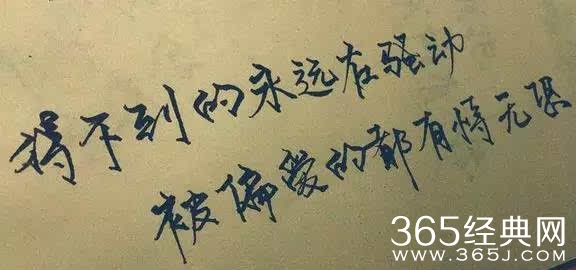 得不到的永远在骚动
被偏爱的都有恃无恐
365经典网
WWW.365J.COM